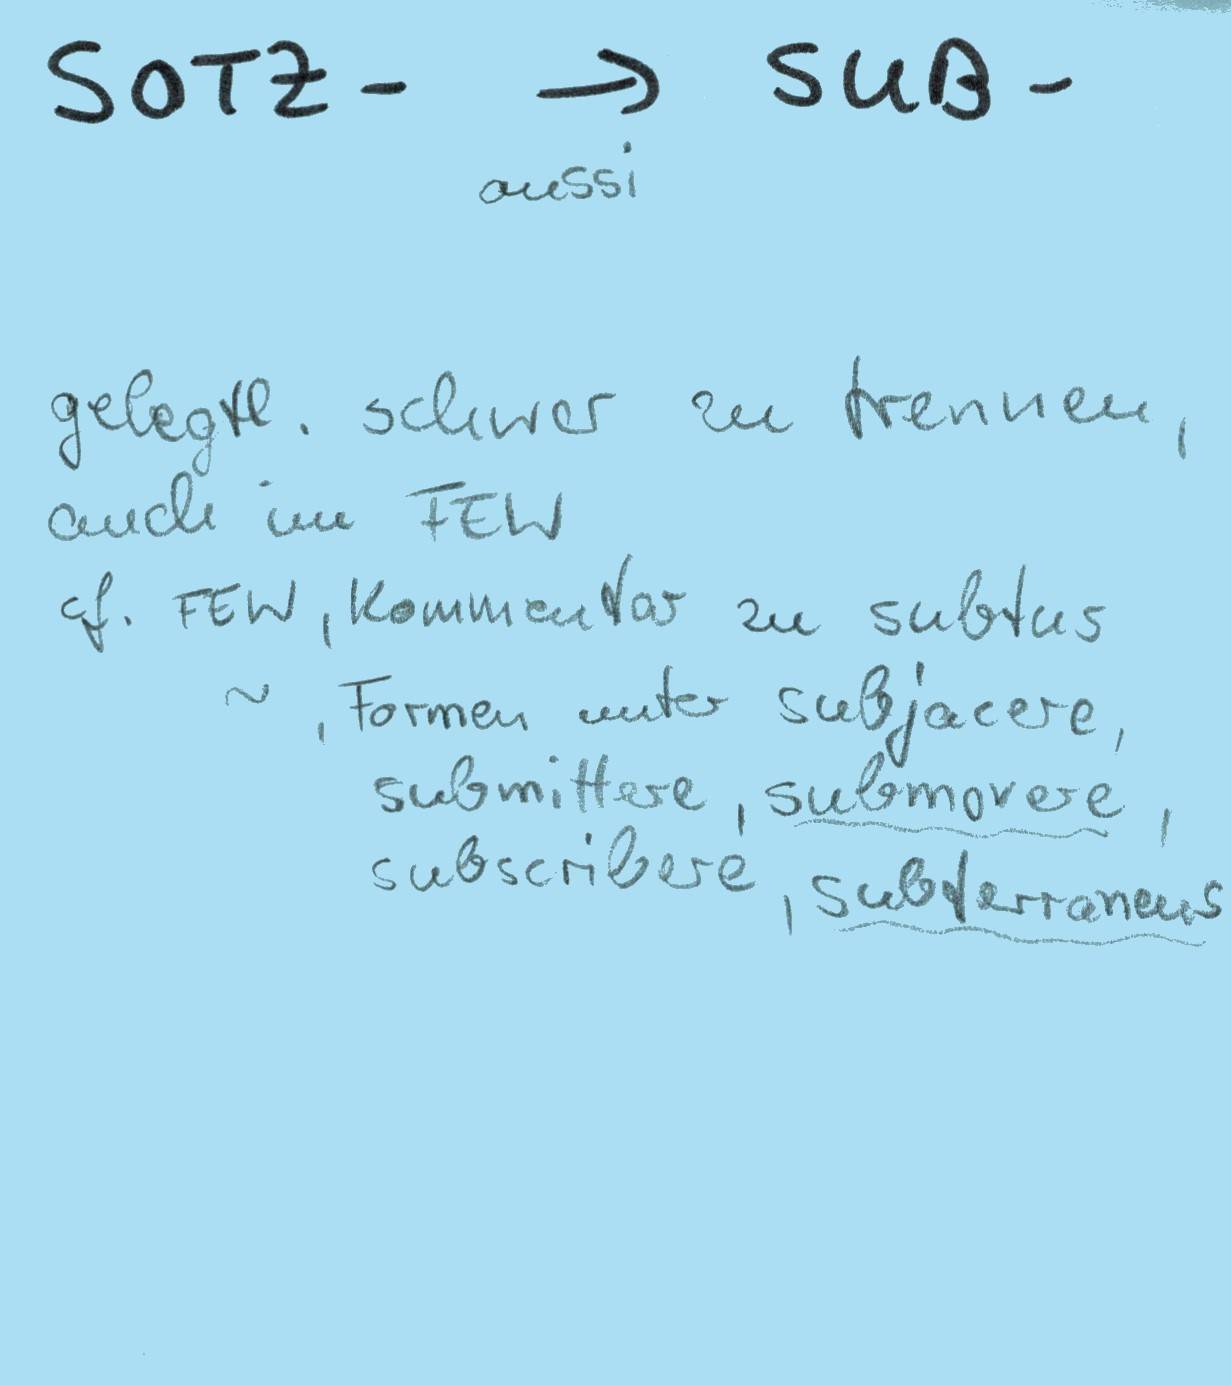 SOTZ- → SUB-
aussi
gelegtl. schwer zu trennen,
auch im FEW
cf. FEW, Kommentar zu subtus
~, Formen unter subjacere,
submittere, submovere,
subscribere, subterraneus